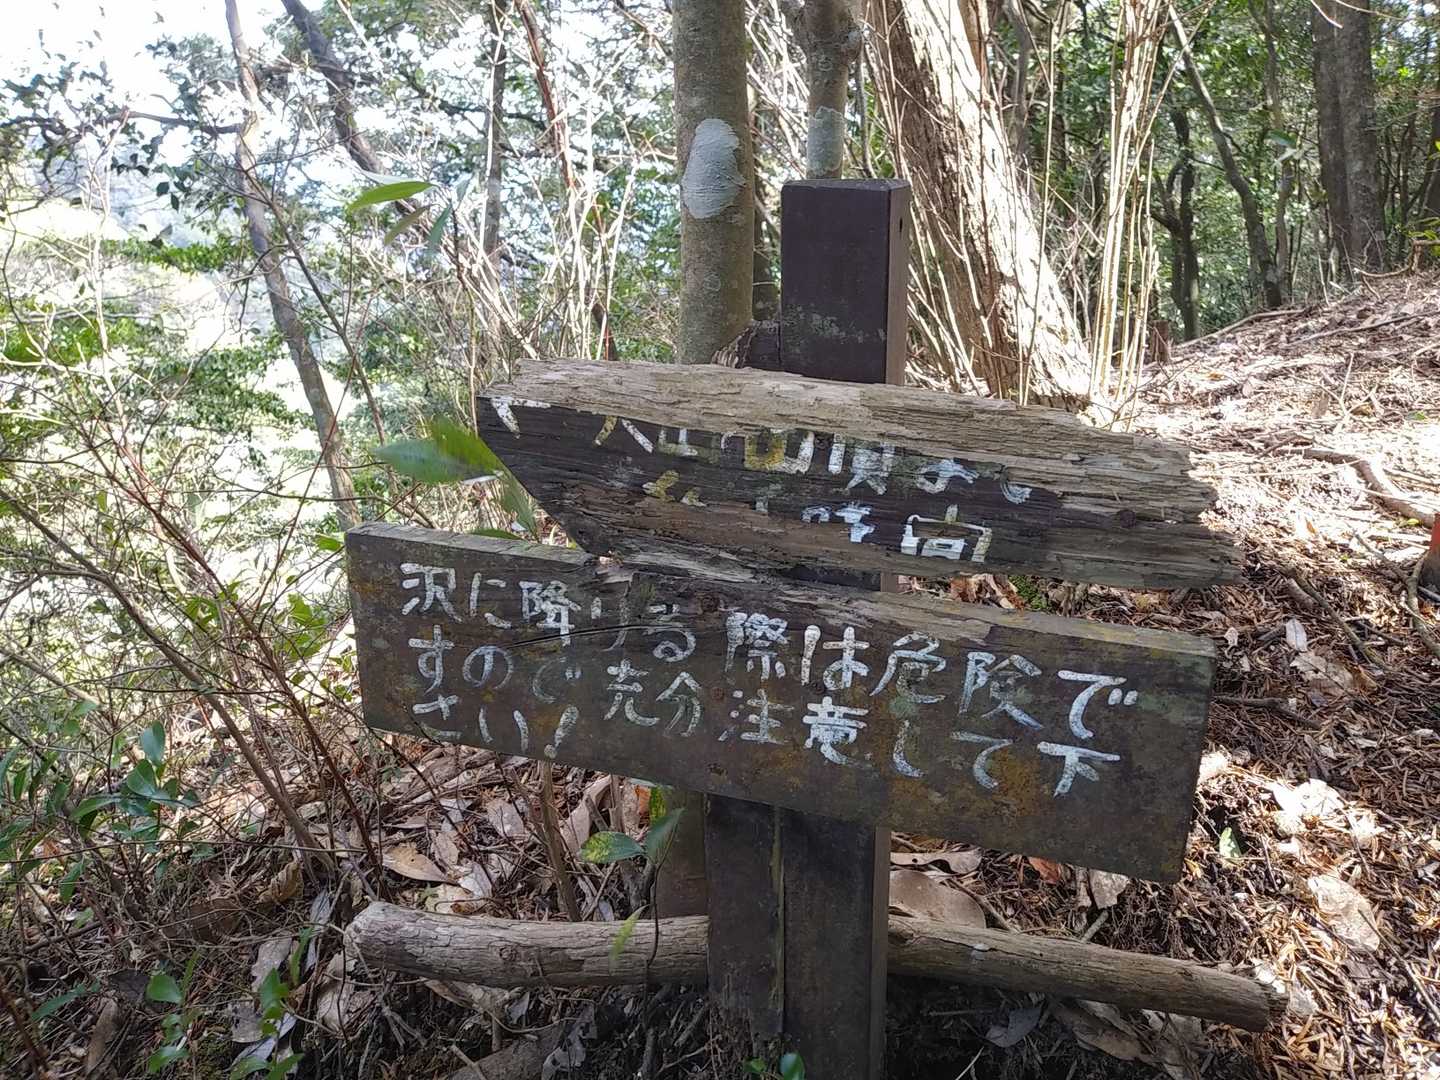 山頂まで
時間
沢に降りる際は危険で
すので充分注意して下
さい!